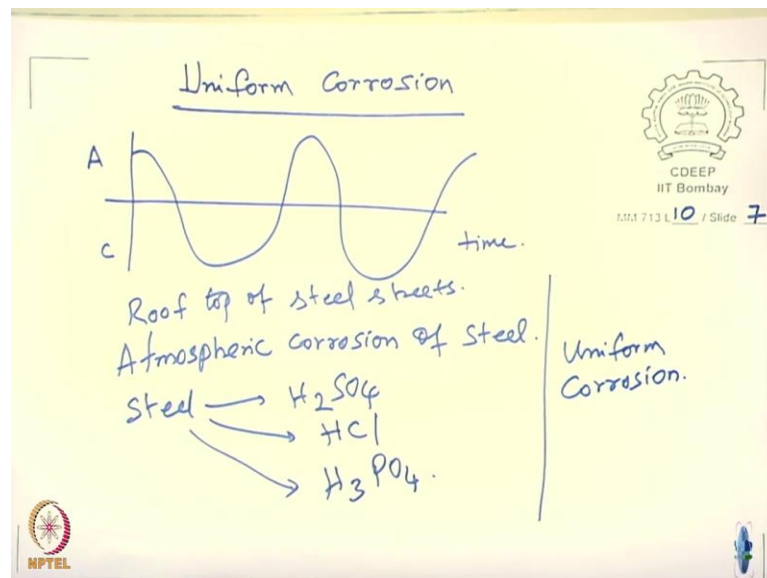 Uniform Corrosion
CDEEP
IIT Bombay
MM 713 L 10 / Slide 7
A
C
time.
Roof top of steel sheets.
Atmospheric corrosion of steel.
Steel → H2SO4
→ HCl
→ H3PO4.
Uniform
Corrosion.
NPTEL